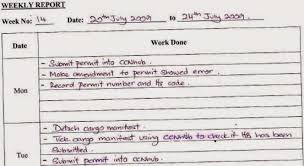 WEEKLY REPORT
Week No: 14 Date: 20th July 2009 to 24th July 2009
Date Work Done
- Submit permit into CCNhub.
- Make amendment to permit showed error.
Mon - Record permit number and its code.
- Detach cargo manifest.
- Tick cargo manifest using CCNHub to check if HS has been
Tue Submitted.
- Submit permit into CCNhub.